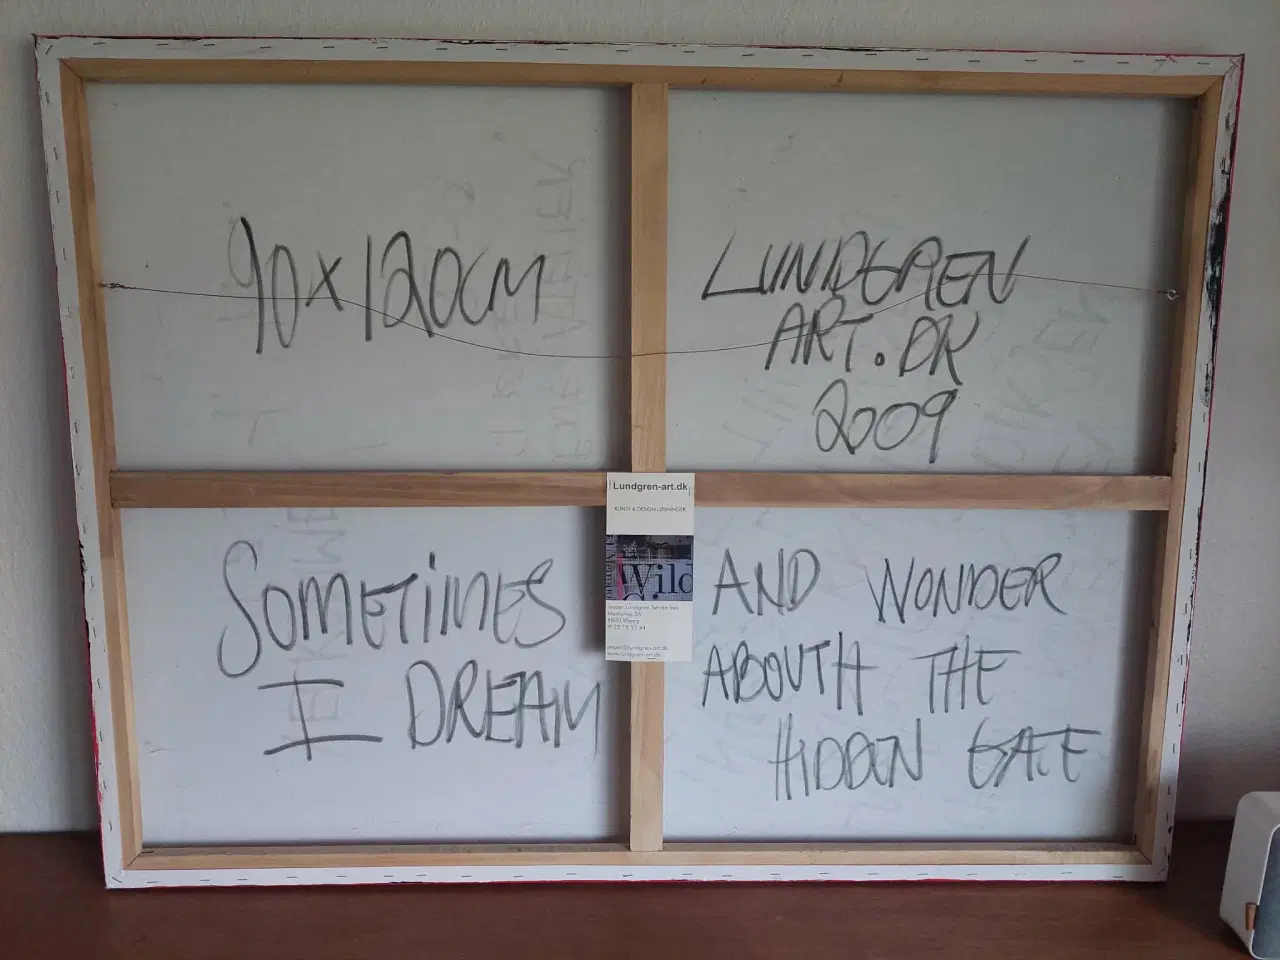 90x120cm
LUNDGREN
ART.DK
2009
Lundgren-art.dk
KUNST & DESIGN LØSNINGER
Wild
SOMETIMES
I DREAM
AND WONDER
ABOUTH THE
HIDDEN GATE